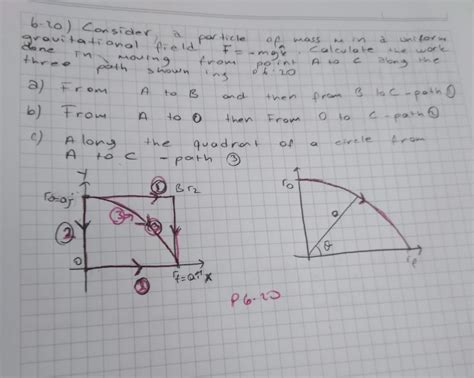 6-20) Consider, a particle of mass m in a uniform
gravitational field F=-mgk̂. Calculate the work
done in moving from point A to C along the
three path shown ing P6.20
a) From A to B and then from B to C - path ①
b) From A to O then From O to C - path
c) Along the quadrant of a circle from
A to C - path ③
y
①
B r2
②
③
O
x
P6-20
r0
a
θ